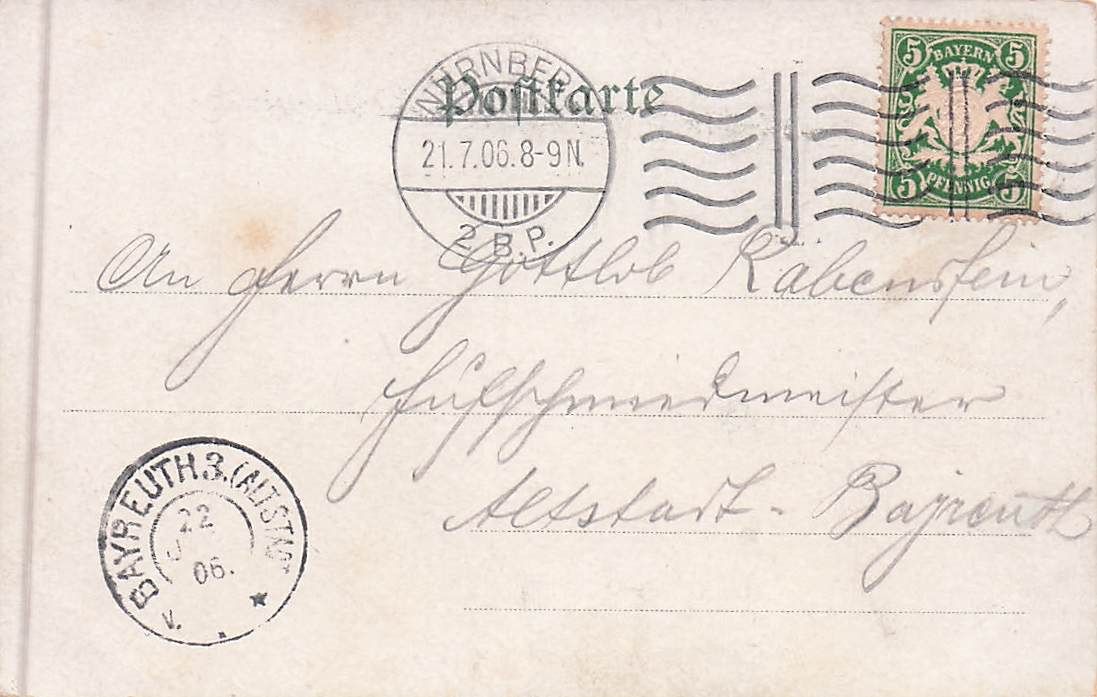 Postkarte
NÜRNBERG
21.7.06.8-9N.
2 B.P.
5 BAYERN 5
5 PFENNIG 5
An Herrn Gottlob Rabenstein,
Hufschmiedmeister
Altstadt - Bayreuth
BAYREUTH 3. (ALTSTADT)
22
06.
V.